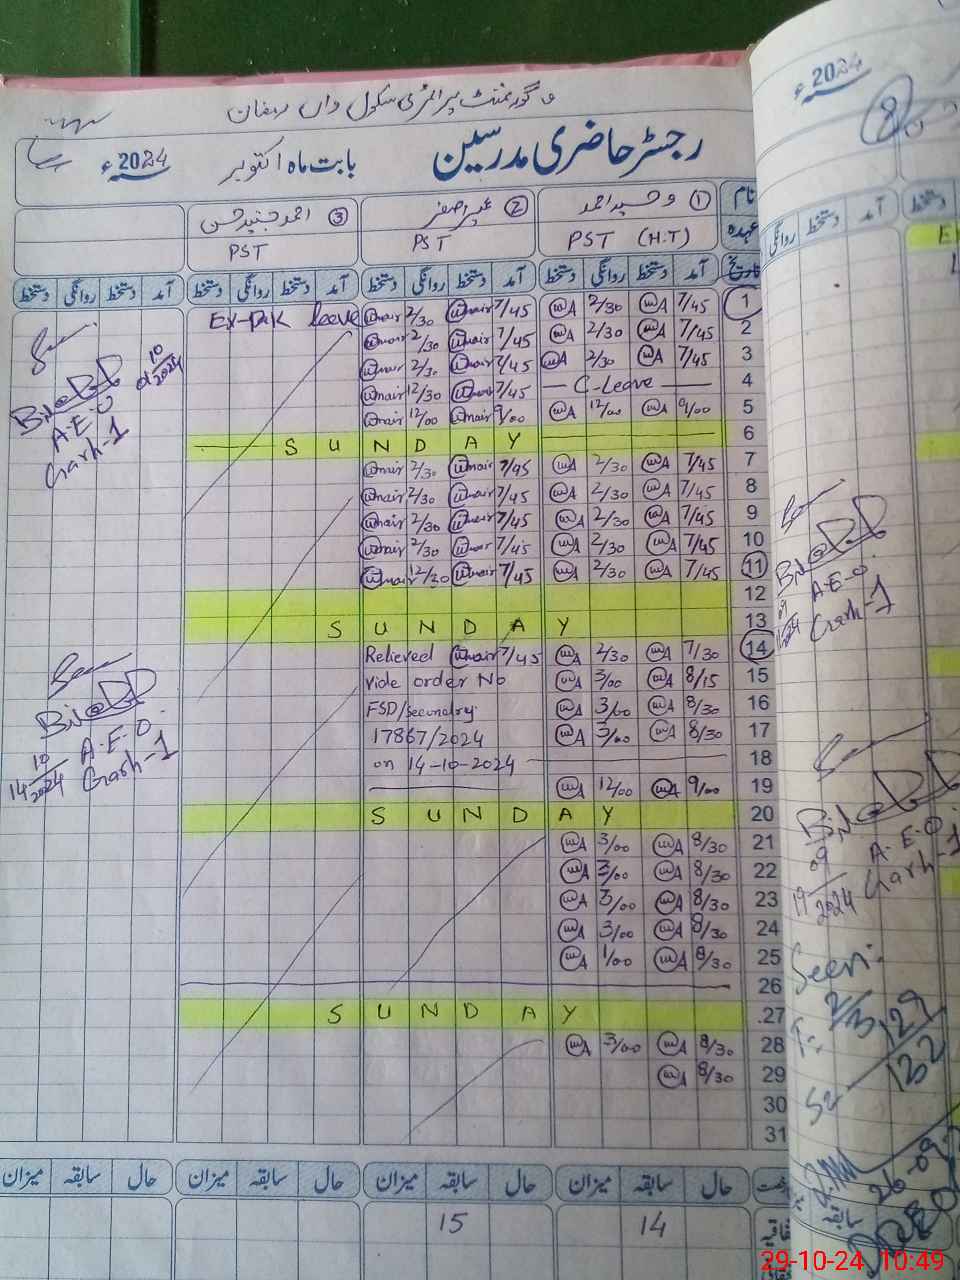 گورنمنٹ پرائمری سکول واں
رجسٹر حاضری مدرسین بابت ماہ اکتوبر 2024ء
نام ① وحید احمد ② عمیر اصغر ③ احمد جنید حسن
عہدہ PST (H.T) PST PST
تاریخ آمد دستخط روانگی دستخط آمد دستخط روانگی دستخط آمد دستخط روانگی دستخط آمد دستخط روانگی دستخط
1 7/45 WA 2/30 WA 7/45 Umair 2/30 Umair Ex-Pak leave
2 7/45 WA 2/30 WA 7/45 Umair 2/30 Umair
3 7/45 WA 2/30 WA 7/45 Umair 2/30 Umair
4 C-Leave 7/45 Umair 12/30 Umair
5 9/00 WA 12/00 WA 9/00 Umair 12/00 Umair
6 SUNDAY
7 7/45 WA 2/30 WA 7/45 Umair 2/30 Umair
8 7/45 WA 2/30 WA 7/45 Umair 2/30 Umair
9 7/45 WA 2/30 WA 7/45 Umair 2/30 Umair
10 7/45 WA 2/30 WA 7/45 Umair 2/30 Umair
11 7/45 WA 2/30 WA 7/45 Umair 12/30 Umair
12
13 SUNDAY
14 7/30 WA 2/30 WA 7/45 Umair Relieved
15 8/15 WA 3/00 WA vide order No
16 8/30 WA 3/00 WA FSD/secondry
17 8/30 WA 3/00 WA 17867/2024
18 on 14-10-2024
19 9/00 WA 12/00 WA
20 SUNDAY
21 8/30 WA 3/00 WA
22 8/30 WA 3/00 WA
23 8/30 WA 3/00 WA
24 8/30 WA 3/00 WA
25 8/30 WA 1/00 WA
26
27 SUNDAY
28 8/30 WA 3/00 WA
29 8/30 WA
30
31
حال سابقہ میزان حال سابقہ میزان حال سابقہ میزان حال سابقہ میزان
14 15
10
2024
A.E.O
Garh-1
10
14 2024
A.E.O.
Garh-1
2024ء
8
آمد دستخط روانگی دستخط
09
2024
A.E.O
Garh-1
09
19 2024
A.E.O.
Garh-1
Seen:
129
132
26-09-
سابقہ
29-10-24 10:49